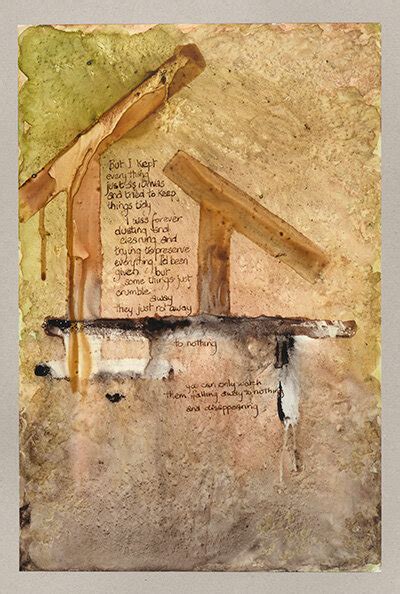 But I kept
everything
just as it was
and tried to keep
things tidy
I was forever
dusting and
cleaning and
trying to preserve
everything I'd been
given but
some things just
crumble
away
they just rot away
to nothing
you can only watch
them falling away to nothing
and disappearing